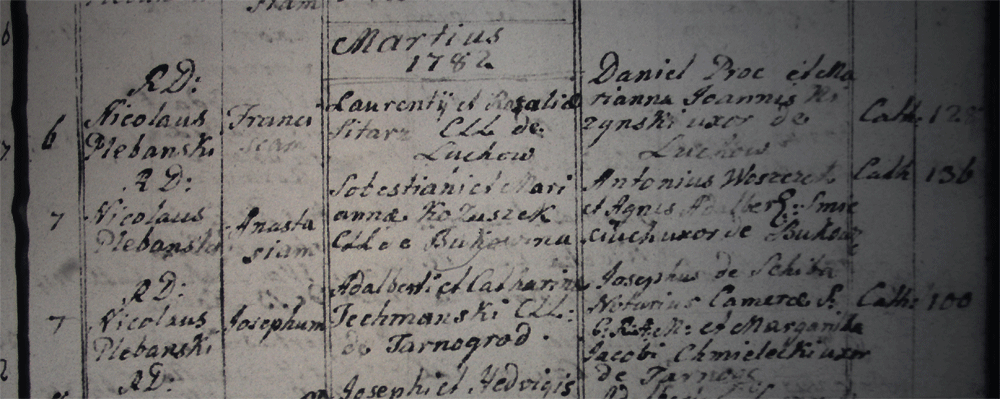 Martius
1782
R D:
Nicolaus
Plebanski
6
Franci
scam
Laurentij et Rosaliæ
Sitarz CLL de
Luchow
Daniel Proc et Ma
rianna Joannis Ki
zynski uxor de
Luchow
Cath: 128
R D:
Nicolaus
Plebanski
7
Anasta
siam
Sobestiani et Mari
annæ Kozuszek
CLL de Bukowina
Antonius Woszczek
et Agnis Adalberti Smie
ciuch uxor de Bukow
Cath 136
R D:
Nicolaus
Plebanski
7
Josephum
Adalberti et Catharina
Techmanski CLL:
de Tarnogrod.
Josephus de Schiba
Notarius Cameræ S.
C.R.A.M. et Margaritha
Jacobi Chmielecki uxor
de Tarnog
Cath: 100
R D:
Josephi et Hedvigis